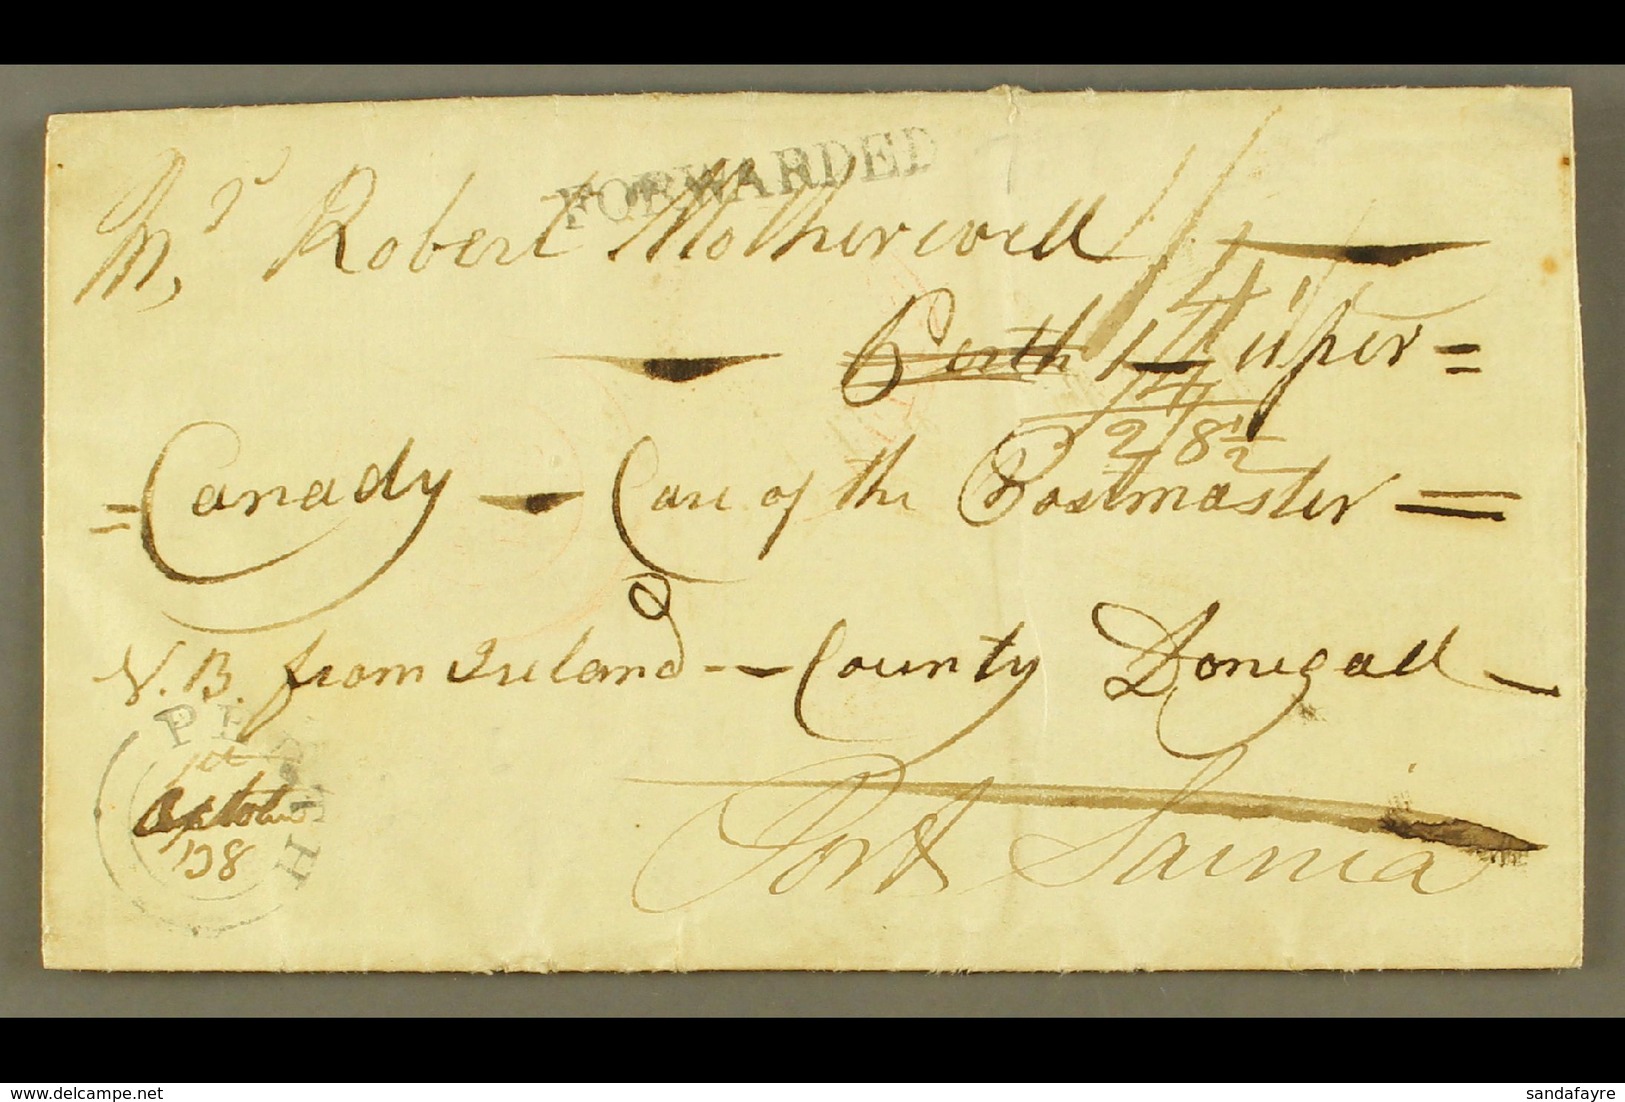 FORWARDED
Mr, Robert Motherwell
Perth Upper =
= Canady - Care of the Postmaster =
2/8 1/2
N.B. from Ireland - - County Donegall -
PERTH
1st
October
138
Port Sarnia
delcampe.net
sandafayre